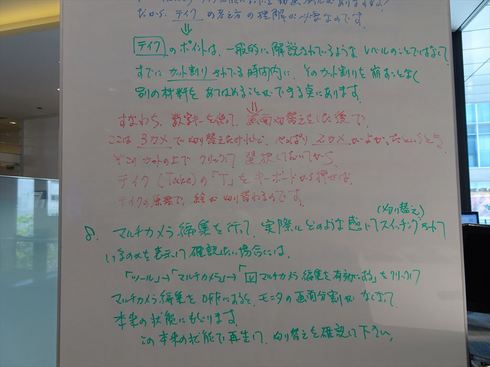 だから、テイク の考え方の理解が必要なのです。
テイク のポイントは、一般的に解説されているようなレベルのことではなくて、
すでに カット割り されている時間内に、そのカット割りを崩すことなく
別の材料をあてはめることができる点にあります。
すなわち、数字キーを使って、画面切替えをした後で、
ここは 3カメ で切り替えたけれど、やっぱり 2カメ がよかったというとき、
そこのカットの上で クリックで 選択しておいてから、
テイク(Take)の「T」を キーボードから押せば、
テイクの原理で、絵が切り替わるのです。
(切り替え)
8. マルチカメラ編集を行って、実際にどのような感じでスイッチングされて
いるのかを 確認したい場合には、
「ツール」→「マルチカメラ」→「☑マルチカメラ編集を有効にする」をクリックして
マルチカメラ編集を OFFにすると、モニタの画面分割がなくなって、
本来の状態にもどります。
この本来の状態で再生して、切り替えを確認して下さい。